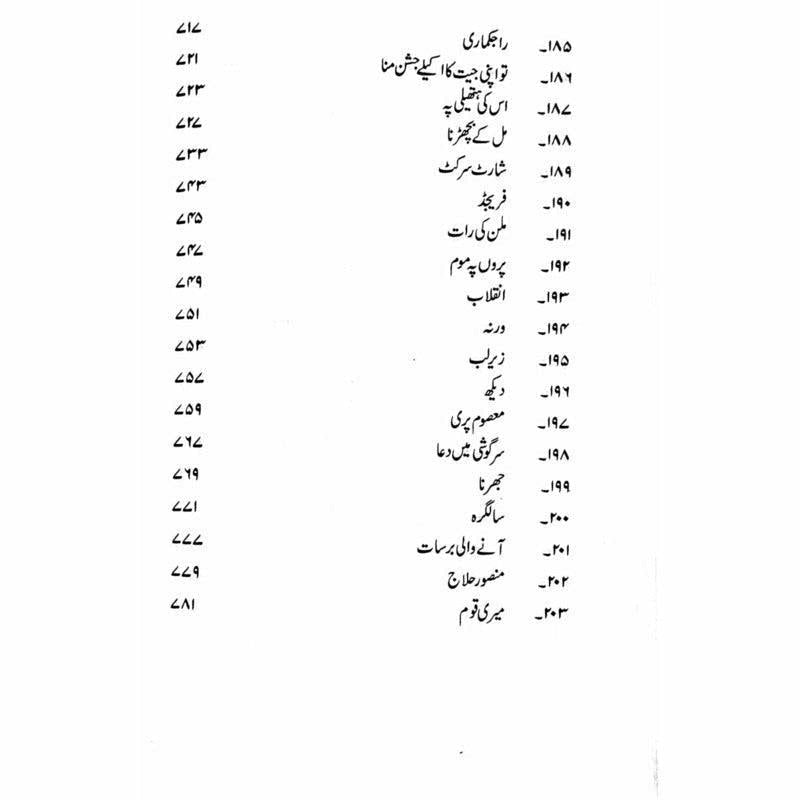 ۱۸۵۔ راجکماری ۷۱۷
۱۸۶۔ تو اپنی جیت کا اکیلے جشن منا ۷۲۱
۱۸۷۔ اس کی ہتھیلی پہ ۷۲۳
۱۸۸۔ مل کے بچھڑنا ۷۲۷
۱۸۹۔ شارٹ سرکٹ ۷۳۳
۱۹۰۔ فریجڈ ۷۴۳
۱۹۱۔ ملن کی رات ۷۴۵
۱۹۲۔ پروں پہ موم ۷۴۷
۱۹۳۔ انقلاب ۷۴۹
۱۹۴۔ ورنہ ۷۵۱
۱۹۵۔ زیرلب ۷۵۳
۱۹۶۔ دیکھ ۷۵۷
۱۹۷۔ معصوم پری ۷۵۹
۱۹۸۔ سرگوشی میں دعا ۷۶۷
۱۹۹۔ جھرنا ۷۶۹
۲۰۰۔ سالگرہ ۷۷۱
۲۰۱۔ آنے والی برسات ۷۷۷
۲۰۲۔ منصور حلاج ۷۷۹
۲۰۳۔ میری قوم ۷۸۱